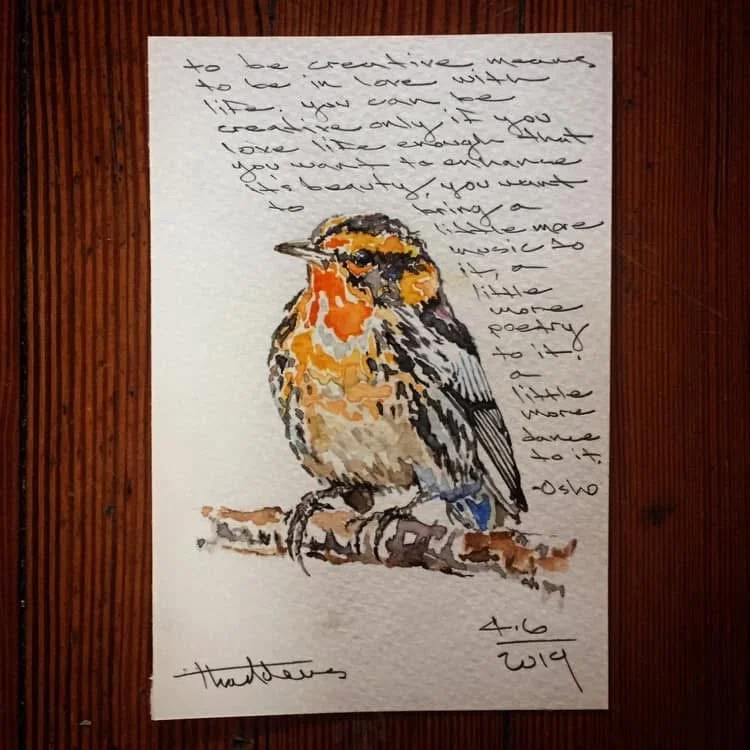 to be creative means
to be in love with
life. you can be
creative only if you
love life enough that
you want to enhance
it's beauty, you want
to bring a
little more
music to
it, a
little
more
poetry
to it,
a
little
more
dance
to it.
-Osho
4.6
2019
Thaddeus